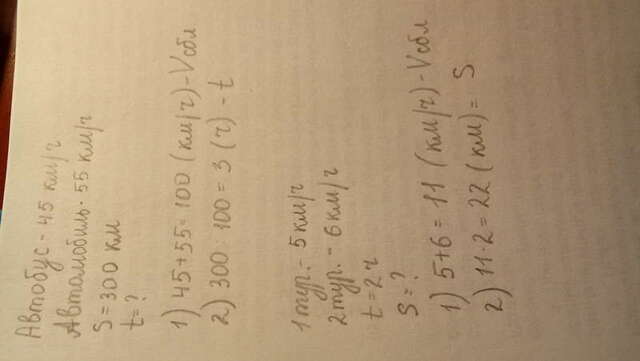 Автобус - 45 км/ч
Автомобиль - 55 км/ч
S = 300 км
t = ?
1) 45+55=100 (км/ч) - Vсбл
2) 300:100=3 (ч) - t
1 тур. - 5 км/ч
2 тур. - 6 км/ч
t = 2 ч
S = ?
1) 5+6=11 (км/ч) - Vсбл
2) 11·2=22 (км) = S